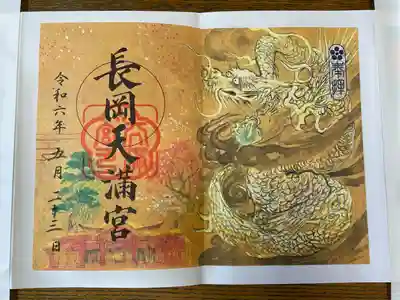 奉拝
長岡天満宮
令和六年 五月 二十三日